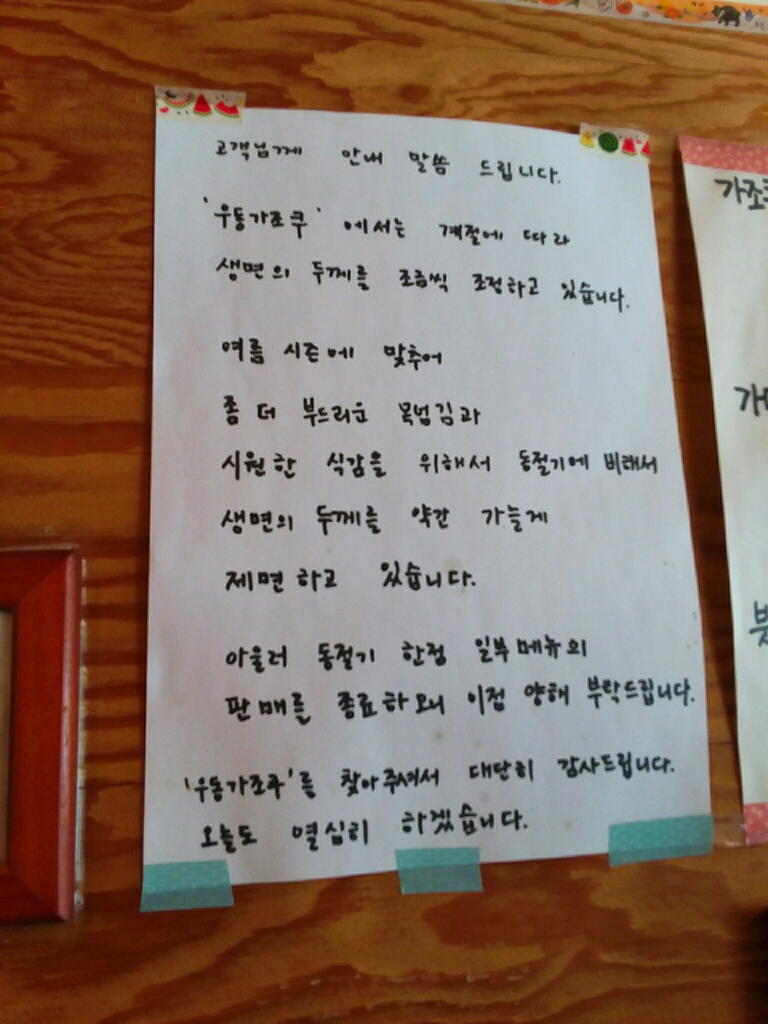 고객님께 안내 말씀 드립니다.
'우동가조쿠' 에서는 계절에 따라
생면의 두께를 조금씩 조정하고 있습니다.
여름 시즌에 맞추어
좀 더 부드러운 목넘김과
시원한 식감을 위해서 동절기에 비해서
생면의 두께를 약간 가늘게
제면하고 있습니다.
아울러 동절기 한정 일부메뉴의
판매를 종료하오니 이점 양해 부탁드립니다.
'우동가조쿠'를 찾아주셔서 대단히 감사드립니다.
오늘도 열심히 하겠습니다.